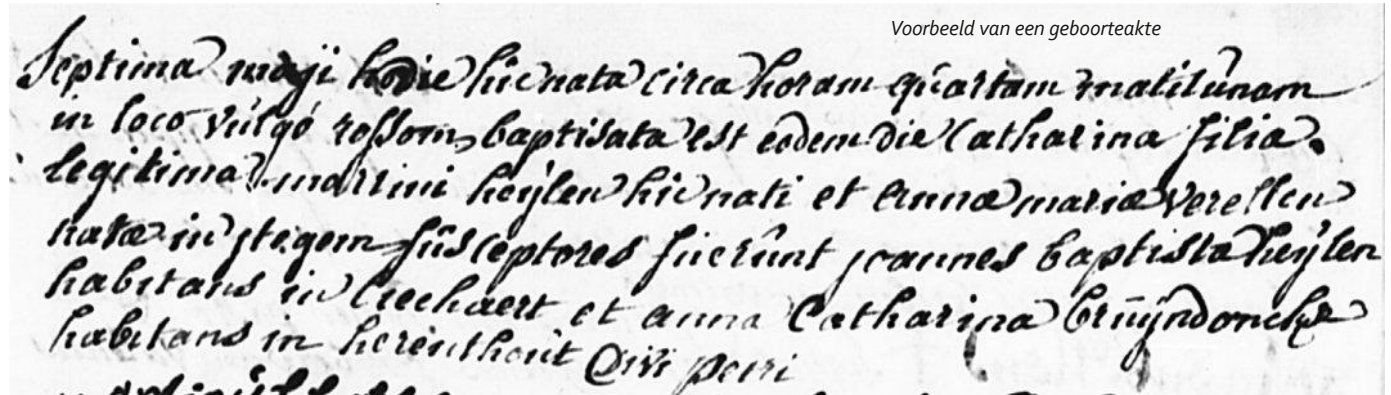 Voorbeeld van een geboorteakte
Septima maji hodie hic nata circa horam quartam matitûnam
in loco vúlgó rossom, baptisata est eodem die Catharina filia
legitima martini heÿlen hic nati et Annæ mariæ verellen
natæ in itegem sûsceptores fuerûnt joannes baptista heÿlen
habitans in Creehaert et anna Catharina brúÿndonckx
habitans in herenthout divi petri